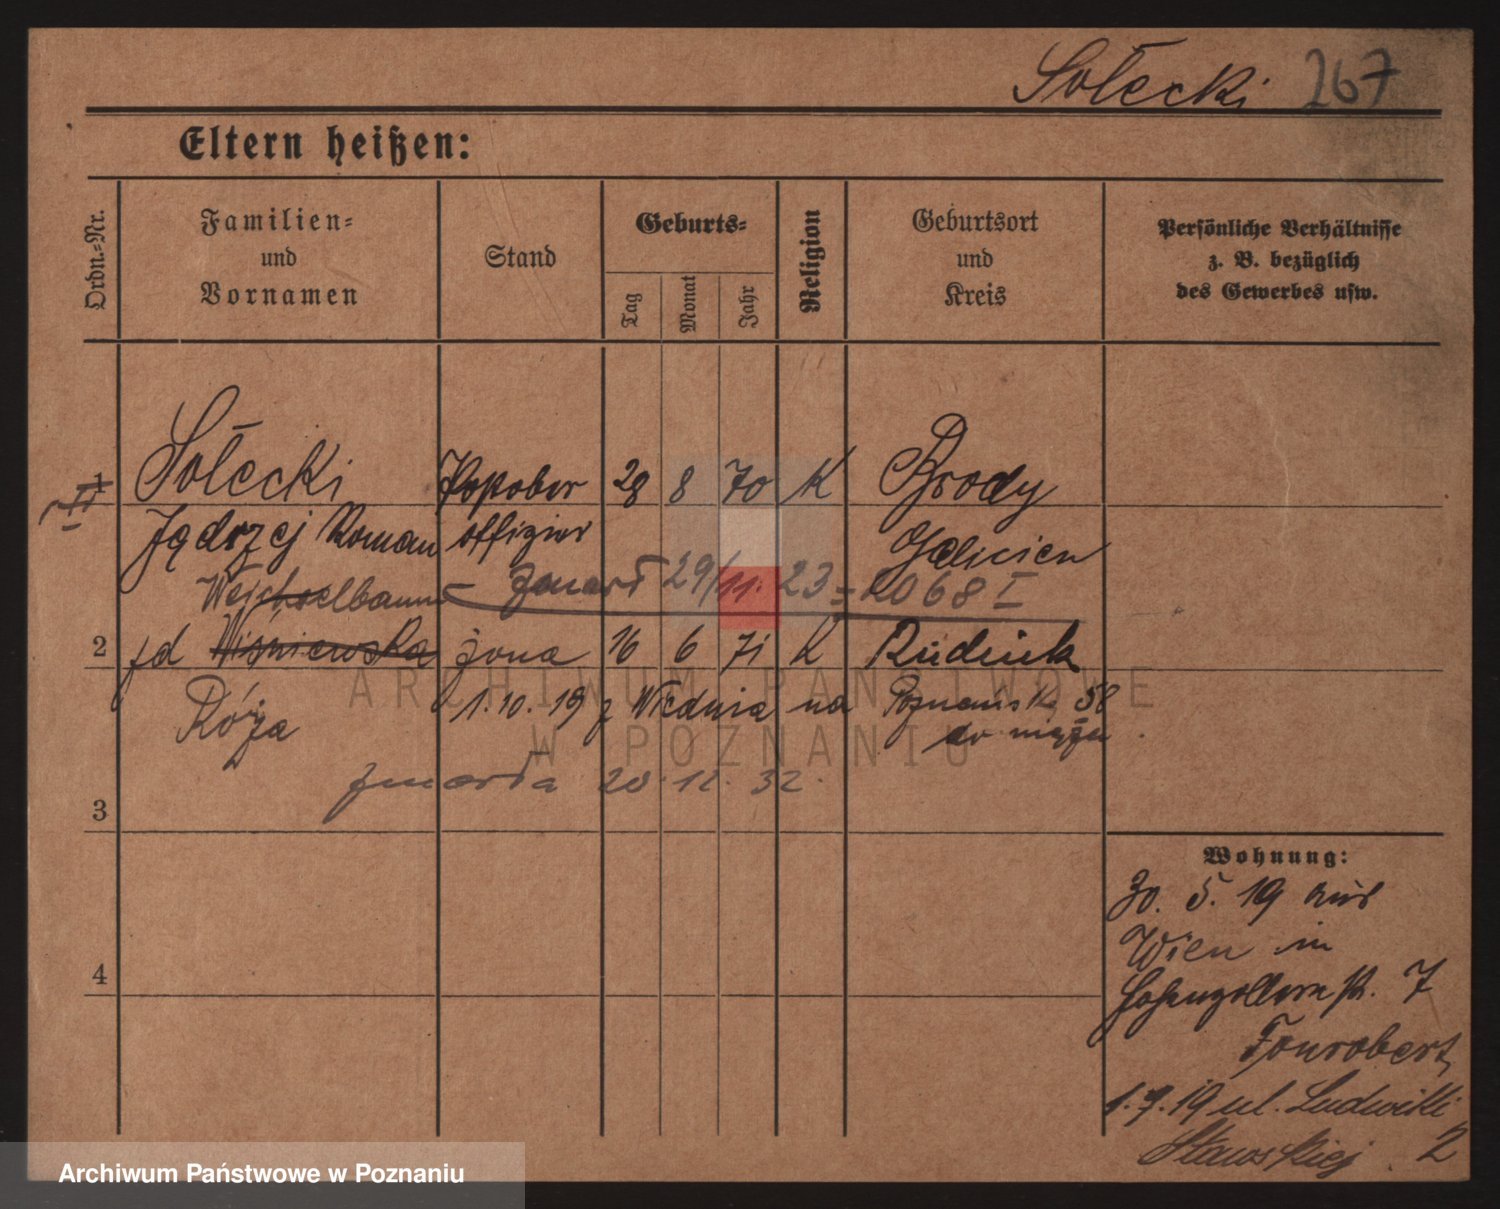 Sołecki 267
Eltern heißen:
Ordn.-Nr.
Familien-
und
Vornamen
Stand
Geburts-
Tag
Monat
Jahr
Religion
Geburtsort
und
Kreis
Persönliche Verhältnisse
z. B. bezüglich
des Gewerbes usw.
1 Sołecki 28 8 70 K Brody
Jędrzej Roman offizier Galicien
Weichselbaum zmarł 29/11. 23 = 2068 I
2 Wiśniewska żona 16 6 71 K Rudnik
Róża 1.10.19 z Wiednia na Poznańsk 58
do męża
zmarła 20.12.32.
3
4
Wohnung:
30. 5. 19 aus
Wien in
Hohenzollernstr. 7
Fourobert
1.7.19 ul. Ludwiki
2
ARCHIWUM PAŃSTWOWE
W POZNANIU
Archiwum Państwowe w Poznaniu